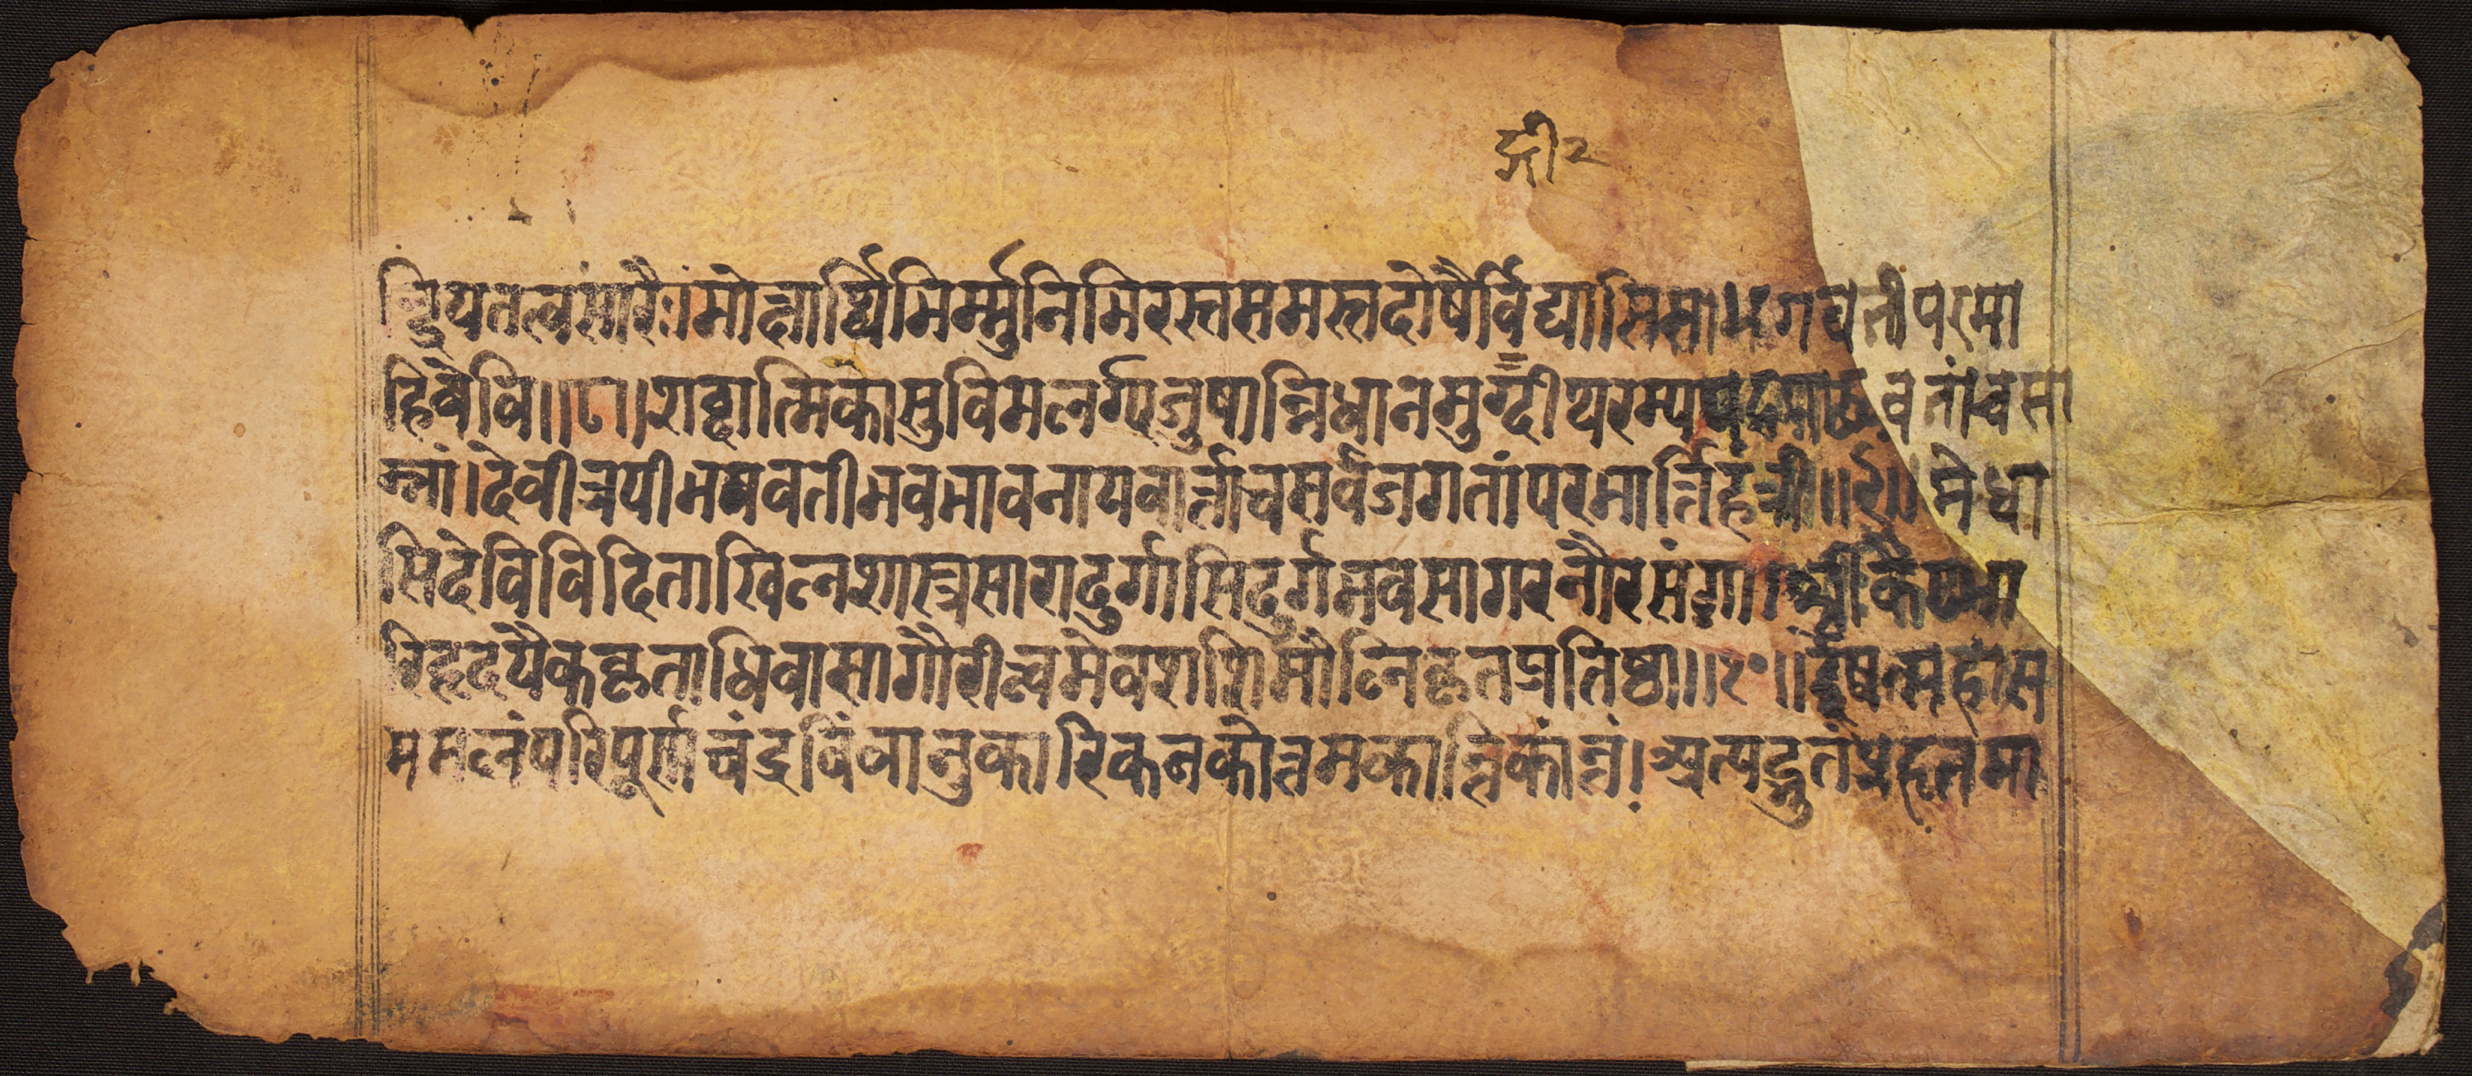 द्री२
न्द्रियतत्वसारैः।मोक्षार्थिभिर्म्मुनिभिरस्तसमस्तदोषैर्विद्यासिसाभगवतीपरमा
हिदेवि॥८॥शब्दात्मिकासुविमलर्ग्यजुषान्निधानमुद्गीथरम्यपदपाठवतांचसा
म्नां।देवीत्रयीभगवतीभवभावनायवार्त्ताचसर्वजगतांपरमार्त्तिहंत्री॥९॥मेधा
सिदेविविदिताखिलशास्त्रसारादुर्गासिदुर्गभवसागरनौरसंगा।श्रीःकैटभा
रिहृदयैककृताधिवासागौरीत्वमेवशशिमौलिकृतप्रतिष्ठा॥१०॥ईषत्सहास
ममलंपरिपूर्णचंद्रविंवानुकारिकनकोत्तमकान्तिकांतं।अत्यद्भुतंप्रहृतमा